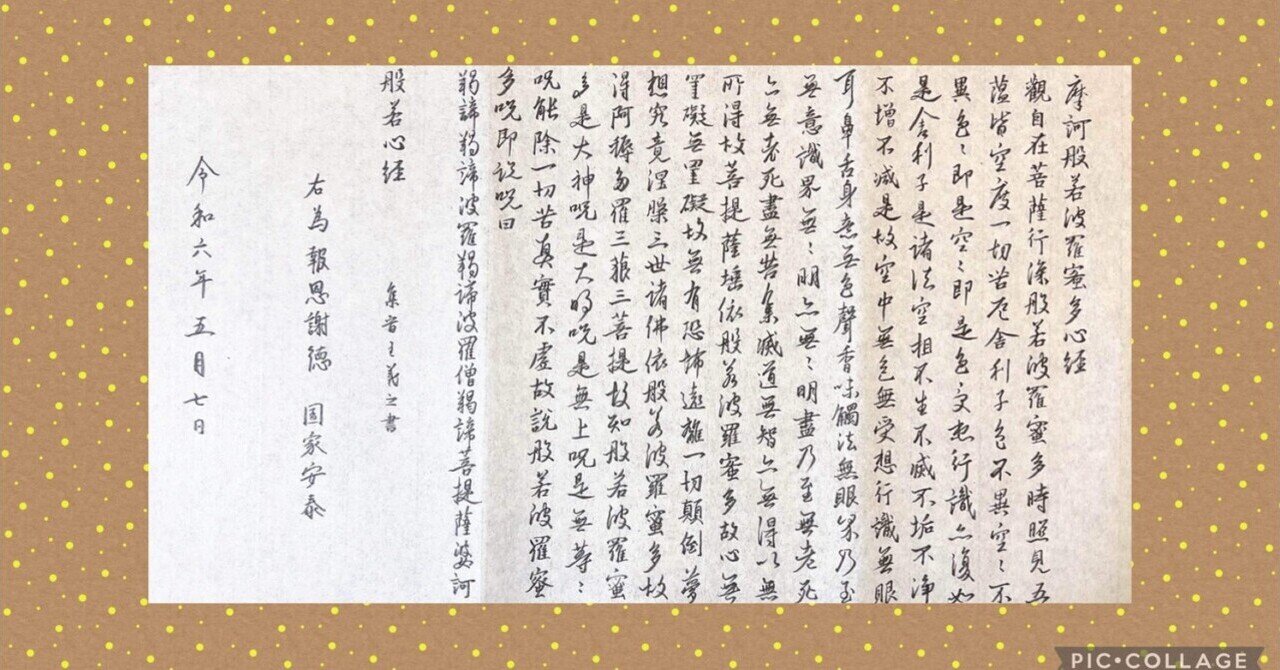 摩訶般若波羅蜜多心経
觀自在菩薩行深般若波羅蜜多時照見五
蘊皆空度一切苦厄舍利子色不異空〻不
異色〻即是空〻即是色受想行識亦復如
是舍利子是諸法空相不生不滅不垢不淨
不增不減是故空中無色無受想行識無眼
耳鼻舌身意無色聲香味觸法無眼界乃至
無意識界無〻明亦無〻明盡乃至無老死
亦無老死盡無苦集滅道無智亦無得以無
所得故菩提薩埵依般若波羅蜜多故心無
罣礙無罣礙故無有恐怖遠離一切顛倒夢
想究竟涅槃三世諸佛依般若波羅蜜多故
得阿耨多羅三藐三菩提故知般若波羅蜜
多是大神呪是大明呪是無上呪是無等〻
呪能除一切苦真實不虛故說般若波羅蜜
多呪即說呪曰
羯諦羯諦波羅羯諦波羅僧羯諦菩提薩婆訶
般若心経
集音王羲之書
右為報恩謝徳 国家安泰
令和六年五月七日
PIC•COLLAGE